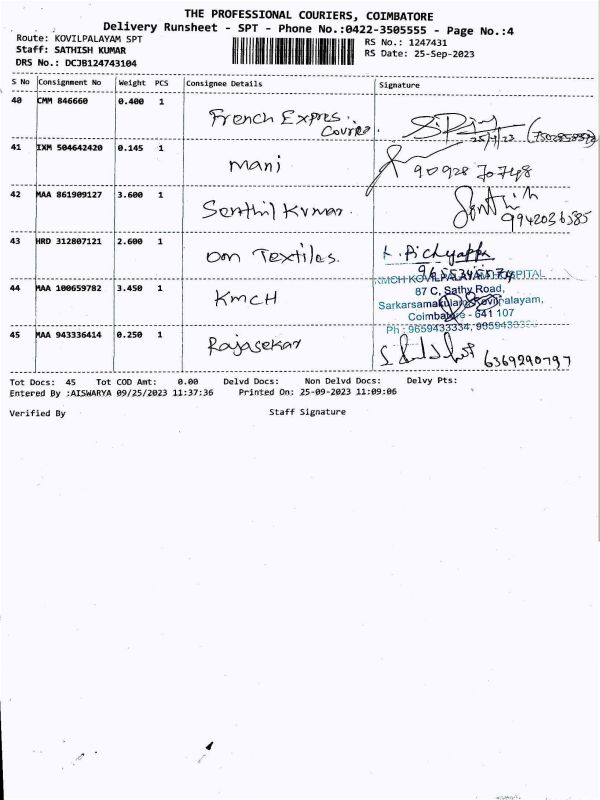 THE PROFESSIONAL COURIERS, COIMBATORE
Delivery Runsheet - SPT - Phone No.:0422-3505555 - Page No.:4
Route: KOVILPALAYAM SPT
RS No.: 1247431
Staff: SATHISH KUMAR
RS Date: 25-Sep-2023
DRS No.: DCJB124743104
S No Consignment No Weight PCS Consignee Details Signature
40 CMM 846660 0.400 1 French Expres.
Courier.
25/9/23
41 IXM 504642420 0.145 1 Mani
90928 70748
42 MAA 861909127 3.600 1 Senthil Kumar. Senthil
9942036585
43 HRD 312807121 2.600 1 Om Textiles. K. Pichyappa
9655345574
KMCH KOVILPALAYAM HOSPITAL
44 MAA 100659782 3.450 1 KMCH 87 C, Sathy Road,
Sarkarsamakulam, Kovilpalayam,
Coimbatore - 641 107
Ph : 9659433334,
45 MAA 943336414 0.250 1 Rajasekar
6369290797
Tot Docs: 45 Tot COD Amt: 0.00 Delvd Docs: Non Delvd Docs: Delvy Pts:
Entered By :AISWARYA 09/25/2023 11:37:36 Printed On: 25-09-2023 11:09:06
Verified By Staff Signature